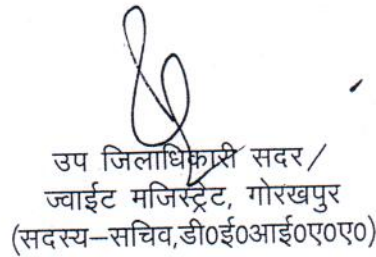 उप जिलाधिकारी सदर/
ज्वाईट मजिस्ट्रेट, गोरखपुर
(सदस्य–सचिव,डी0ई0आई0ए0ए0)